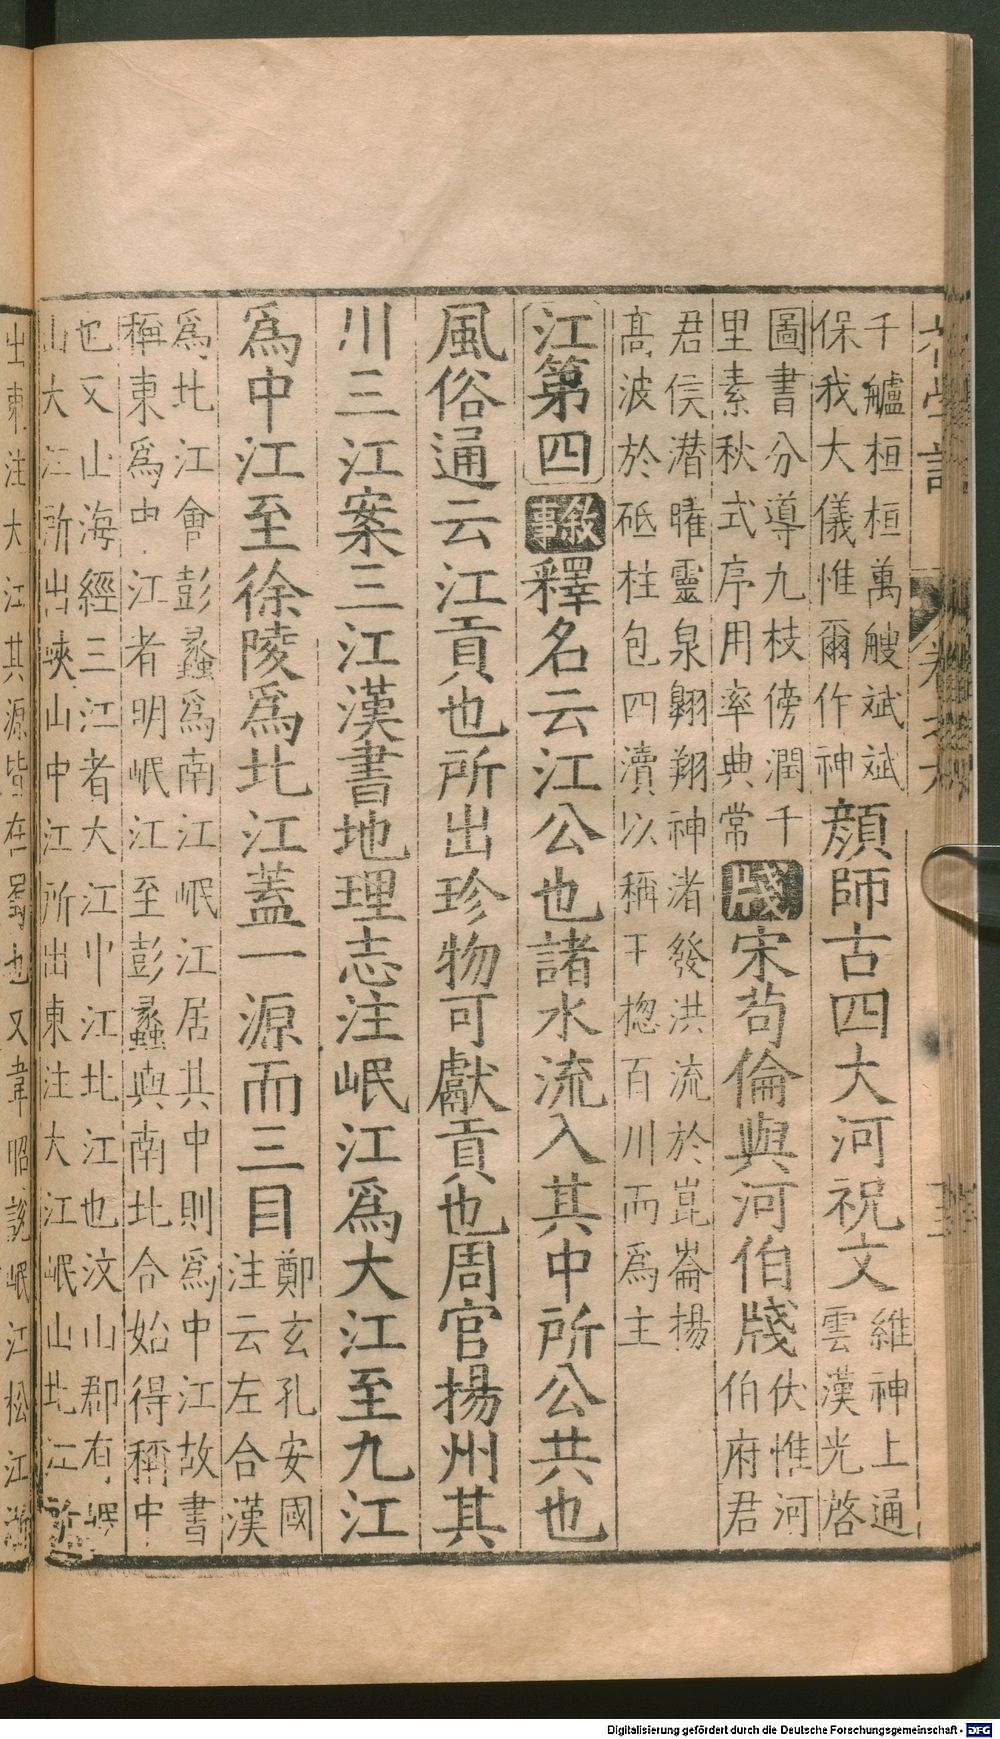 千艫桓桓萬艘斌斌
保我大儀惟爾作神
顏師古四大河祝文
維神上通
雲漢光啓
圖書分導九枝傍潤千
里素秋式序用率典常
牋
宋苟倫與河伯牋
伏惟河
伯府君
君信潜曜靈泉翺翔神渚發洪流於崑崙揚
髙波於砥柱包四瀆以稱王揔百川而爲主
江第四
敘事
釋名云江公也諸水流入其中所公共也
風俗通云江貢也所出珍物可獻貢也周官揚州其
川三江案三江漢書地理志注岷江爲大江至九江
爲中江至徐陵爲北江蓋一源而三目
鄭玄孔安國
注云左合漢
爲北江會彭蠡爲南江岷江居其中則爲中江故書
稱東爲中江者明岷江至彭蠡與南北合始得稱中
也又山海經三江者大江中江北江也汶山郡有岷
山大江所出崍山中江所出東注大江岷山北江所
出東注大江其源皆在蜀也又韋昭說岷江松江浙
Digitalisierung gefördert durch die Deutsche Forschungsgemeinschaft - DFG